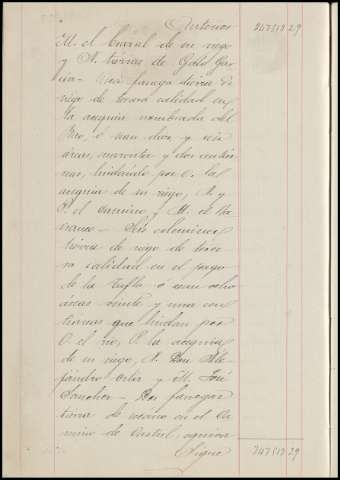 Anteriores 247513 29
M. el Corral de su riego
y N. tierras de Galo Gar
cia - Una fanega tierra de
riego de tercera calidad en
la acequia nombrada del
o sean diez y seis
áreas, cuarenta y dos centia
reas, lindando por O. tal
acequia de su riego, N. y
P. el Camino, y M. el Ba
rranco - Seis celemines
tierra de riego de terce
ra calidad en el pago
de la o sean ocho
áreas veinte y una cen
tiareas que lindan por
O. el rio, P. la acequia
de su riego, N. Don Ale
jandro Ortiz y M. José
Sanchez - Dos fanegas
tierra de secano en el Ca
mino de
Sigue 247513 29